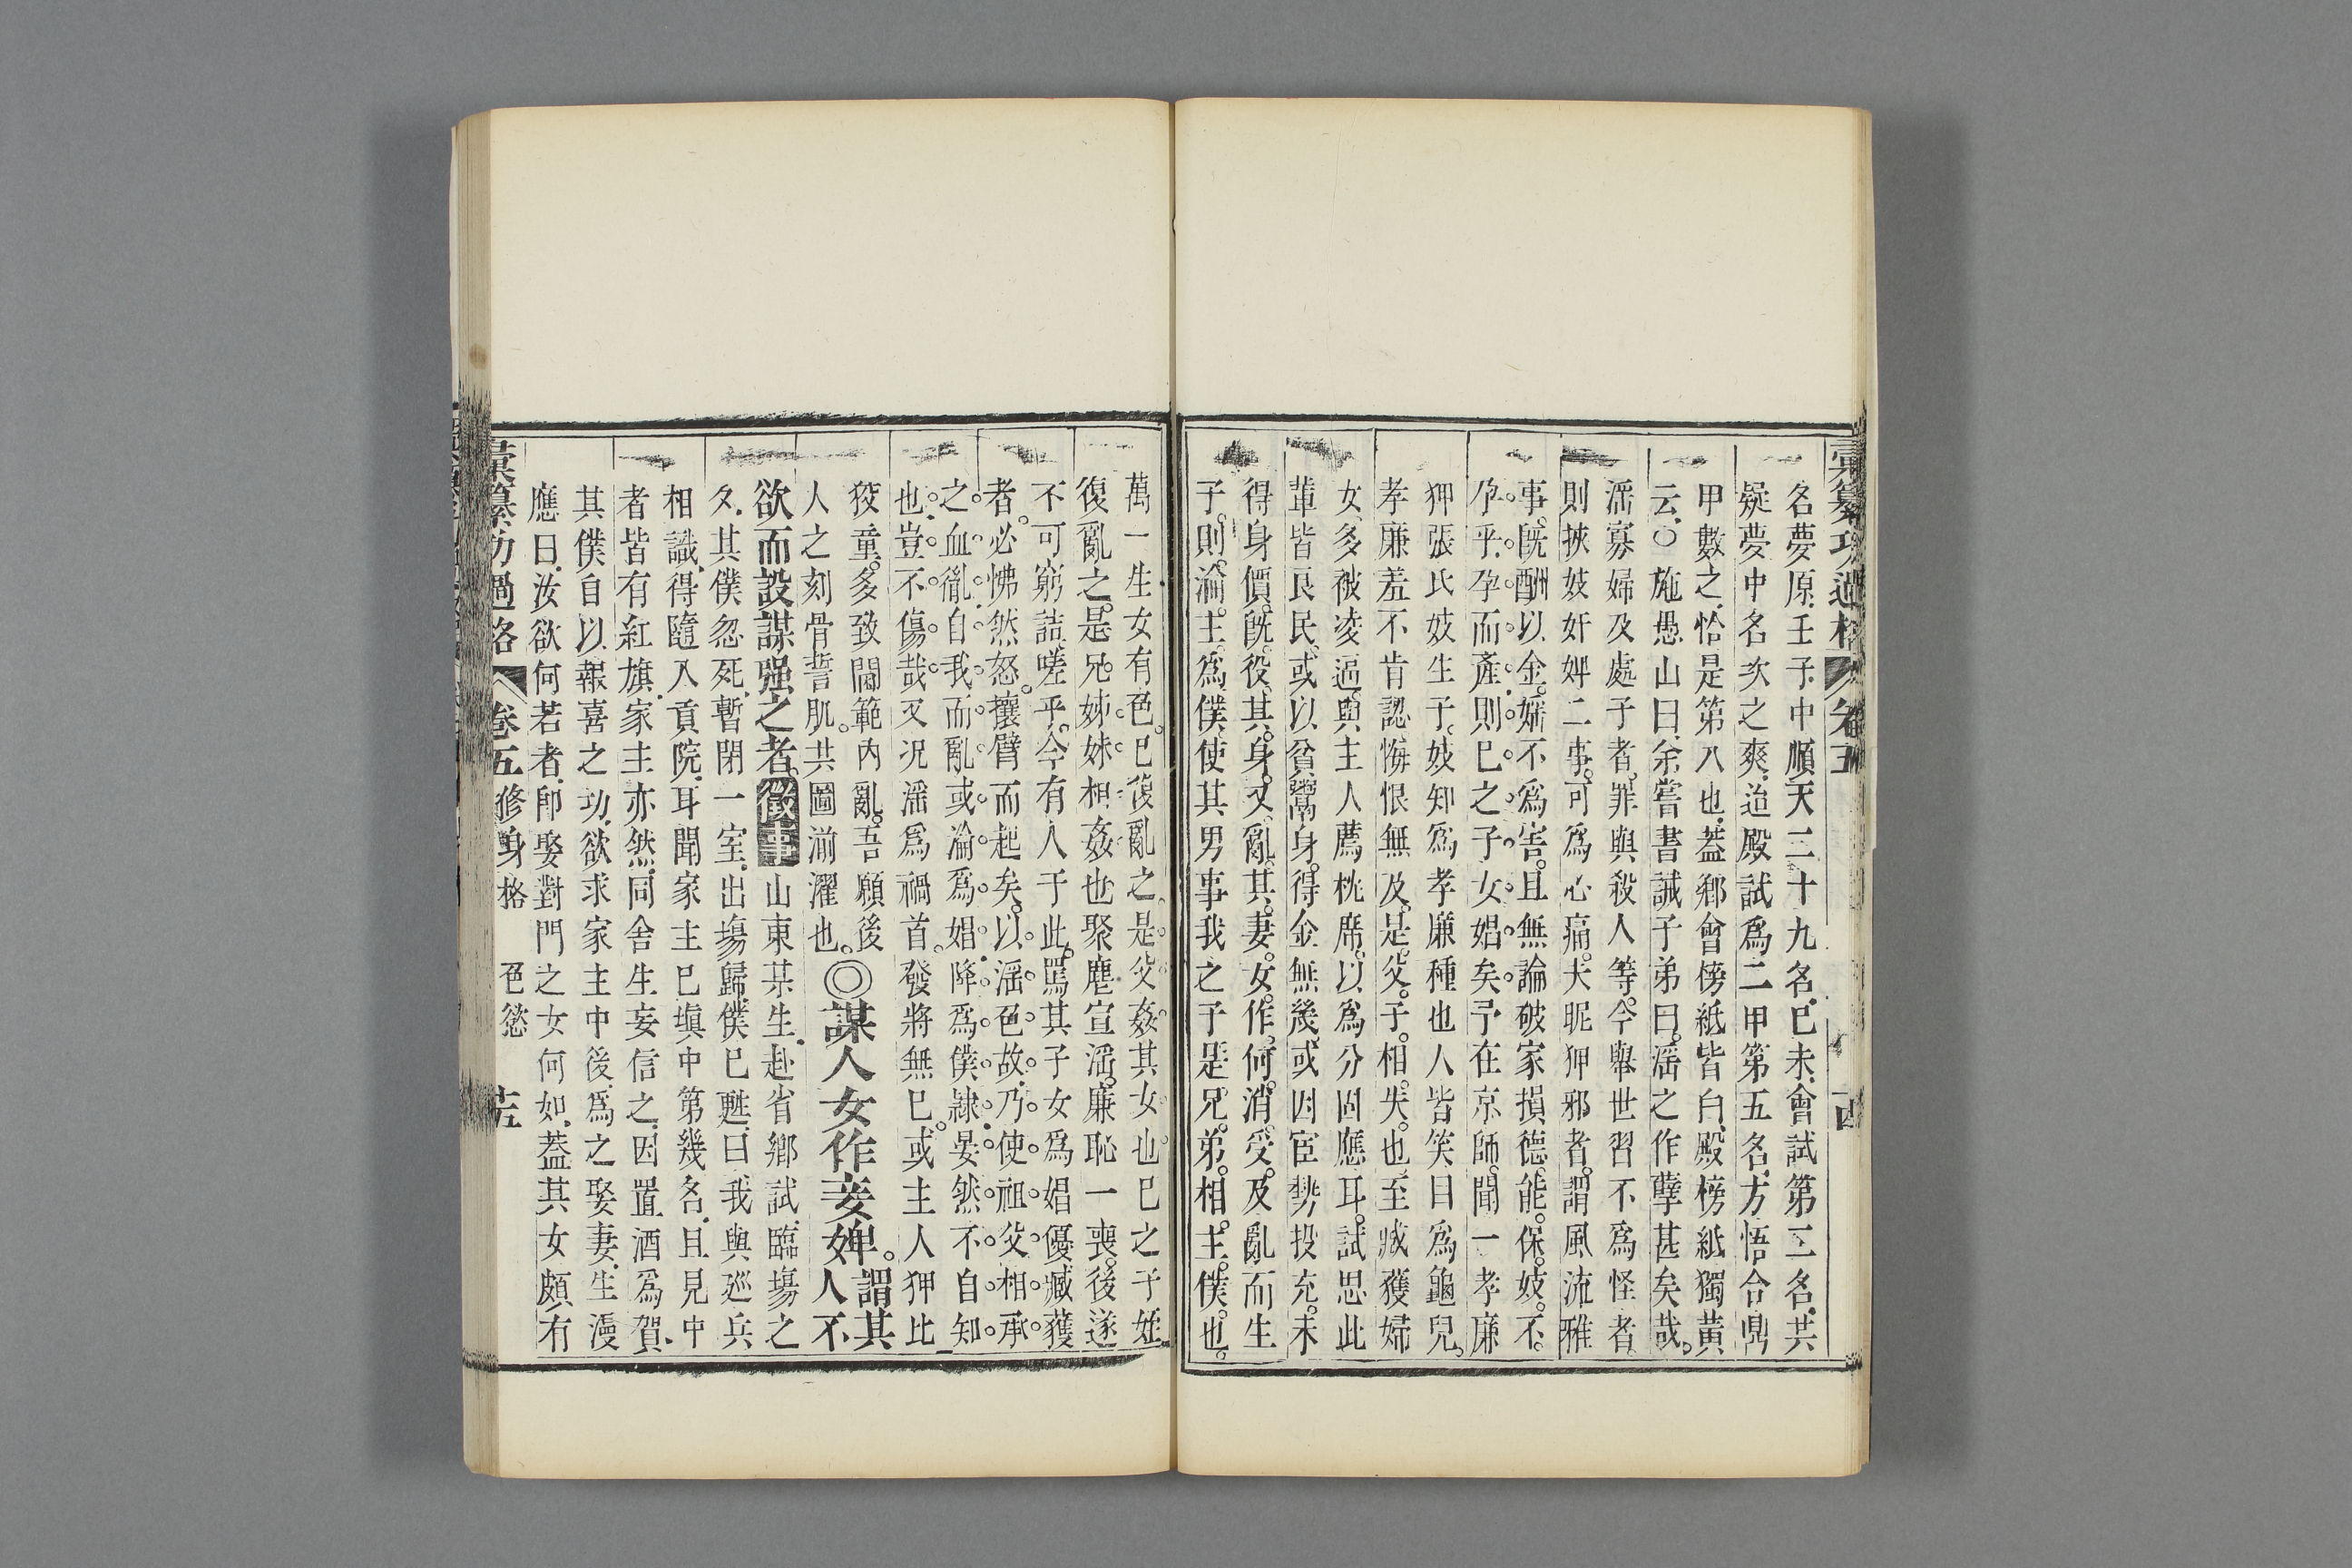 彙纂功過格 卷五
名夢原壬子中順天二十九名己未會試第二名共
疑夢中名次之爽迨殿試爲二甲第五名方悟合鼎
甲數之恰是第八也蓋鄉會榜紙皆白殿榜紙獨黃
云○施愚山曰余嘗書誡子弟曰淫之作孽甚矣哉
淫寡婦及處子者罪與殺人等今舉世習不爲怪者
則挾妓奸婢二事可爲心痛夫昵狎邪者謂風流雅
事既酬以金媾不爲害且無論破家損德能保妓不
孕乎孕而產則己之子女娼矣予在京師聞一孝廉
狎張氏妓生子妓知爲孝廉種也人皆笑目爲龜兒
孝廉羞不肯認悔恨無及是父子相失也至臧獲婦
女多被凌逼與主人薦枕席以爲分固應耳試思此
輩皆良民或以貧鬻身得金無幾或因宦勢投充未
得身價既役其身又亂其妻女作何消受及亂而生
子則淪主爲僕使其男事我之子是兄弟相主僕也
萬一生女有色己復亂之是父姦其女也己之子姪
復亂之是兄姊妹相姦也聚麀宣淫廉恥一喪後遂
不可窮詰嗟乎今有人于此罵其子女爲娼優臧獲
者必怫然怒攘臂而起矣以淫色故乃使祖父相承
之血胤自我而亂或淪爲娼降爲僕隸晏然不自知
也豈不傷哉又况淫爲禍首發將無已或主人狎比
狡童多致閫範內亂吾願後
人之刻骨誓肌共圖湔濯也◎謀人女作妾婢謂其人不
欲而設謀强之者徵事山東某生赴省鄉試臨塲之
夕其僕忽死暫閉一室出塲歸僕已甦曰我與廵兵
相識得隨入貢院耳聞家主已塡中第幾名且見中
者皆有紅旗家主亦然同舍生妄信之因置酒爲賀
其僕自以報喜之功欲求家主中後爲之娶妻生漫
應曰汝欲何若者卽娶對門之女何如蓋其女頗有
彙纂功過格 卷五 修身格 色慾